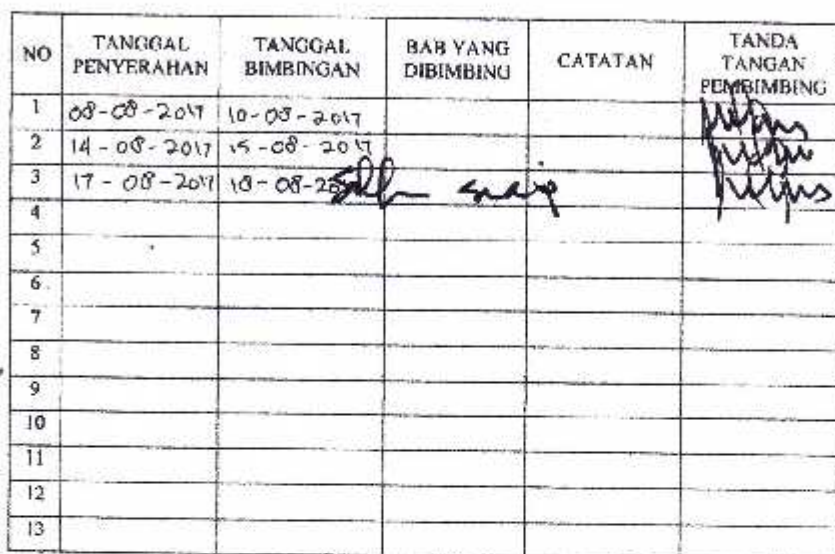 NO TANGGAL PENYERAHAN TANGGAL BIMBINGAN BAB YANG DIBIMBING CATATAN TANDA TANGAN PEMBIMBING
1 08-08-2017 10-08-2017
2 14-08-2017 15-08-2017
3 17-08-2017 18-08-20
4
5
6
7
8
9
10
11
12
13